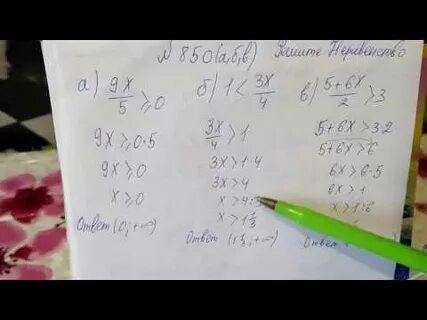 № 850(а,б,в) Решите Неравенство
а) 9x/5 ⩾ 0
9x ⩾ 0·5
9x ⩾ 0
x ⩾ 0
Ответ (0; +∞)
б) 1 < 3x/4
3x/4 > 1
3x > 1·4
3x > 4
x > 4:3
x > 1 1/3
Ответ (1 1/3; +∞)
в) 5+6x/2 > 3
5+6x > 3·2
5+6x > 6
6x > 6-5
6x > 1
x > 1:6
Ответ (